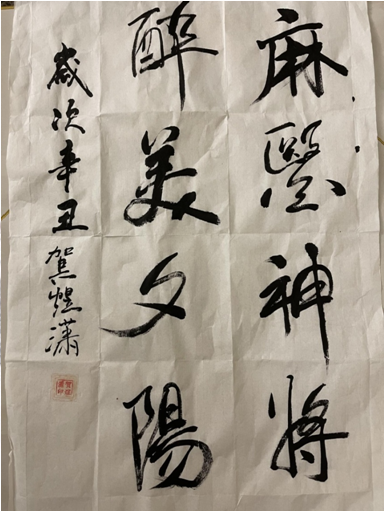 麻醫神將
醉美夕陽
歲次辛丑 賀煜瀟